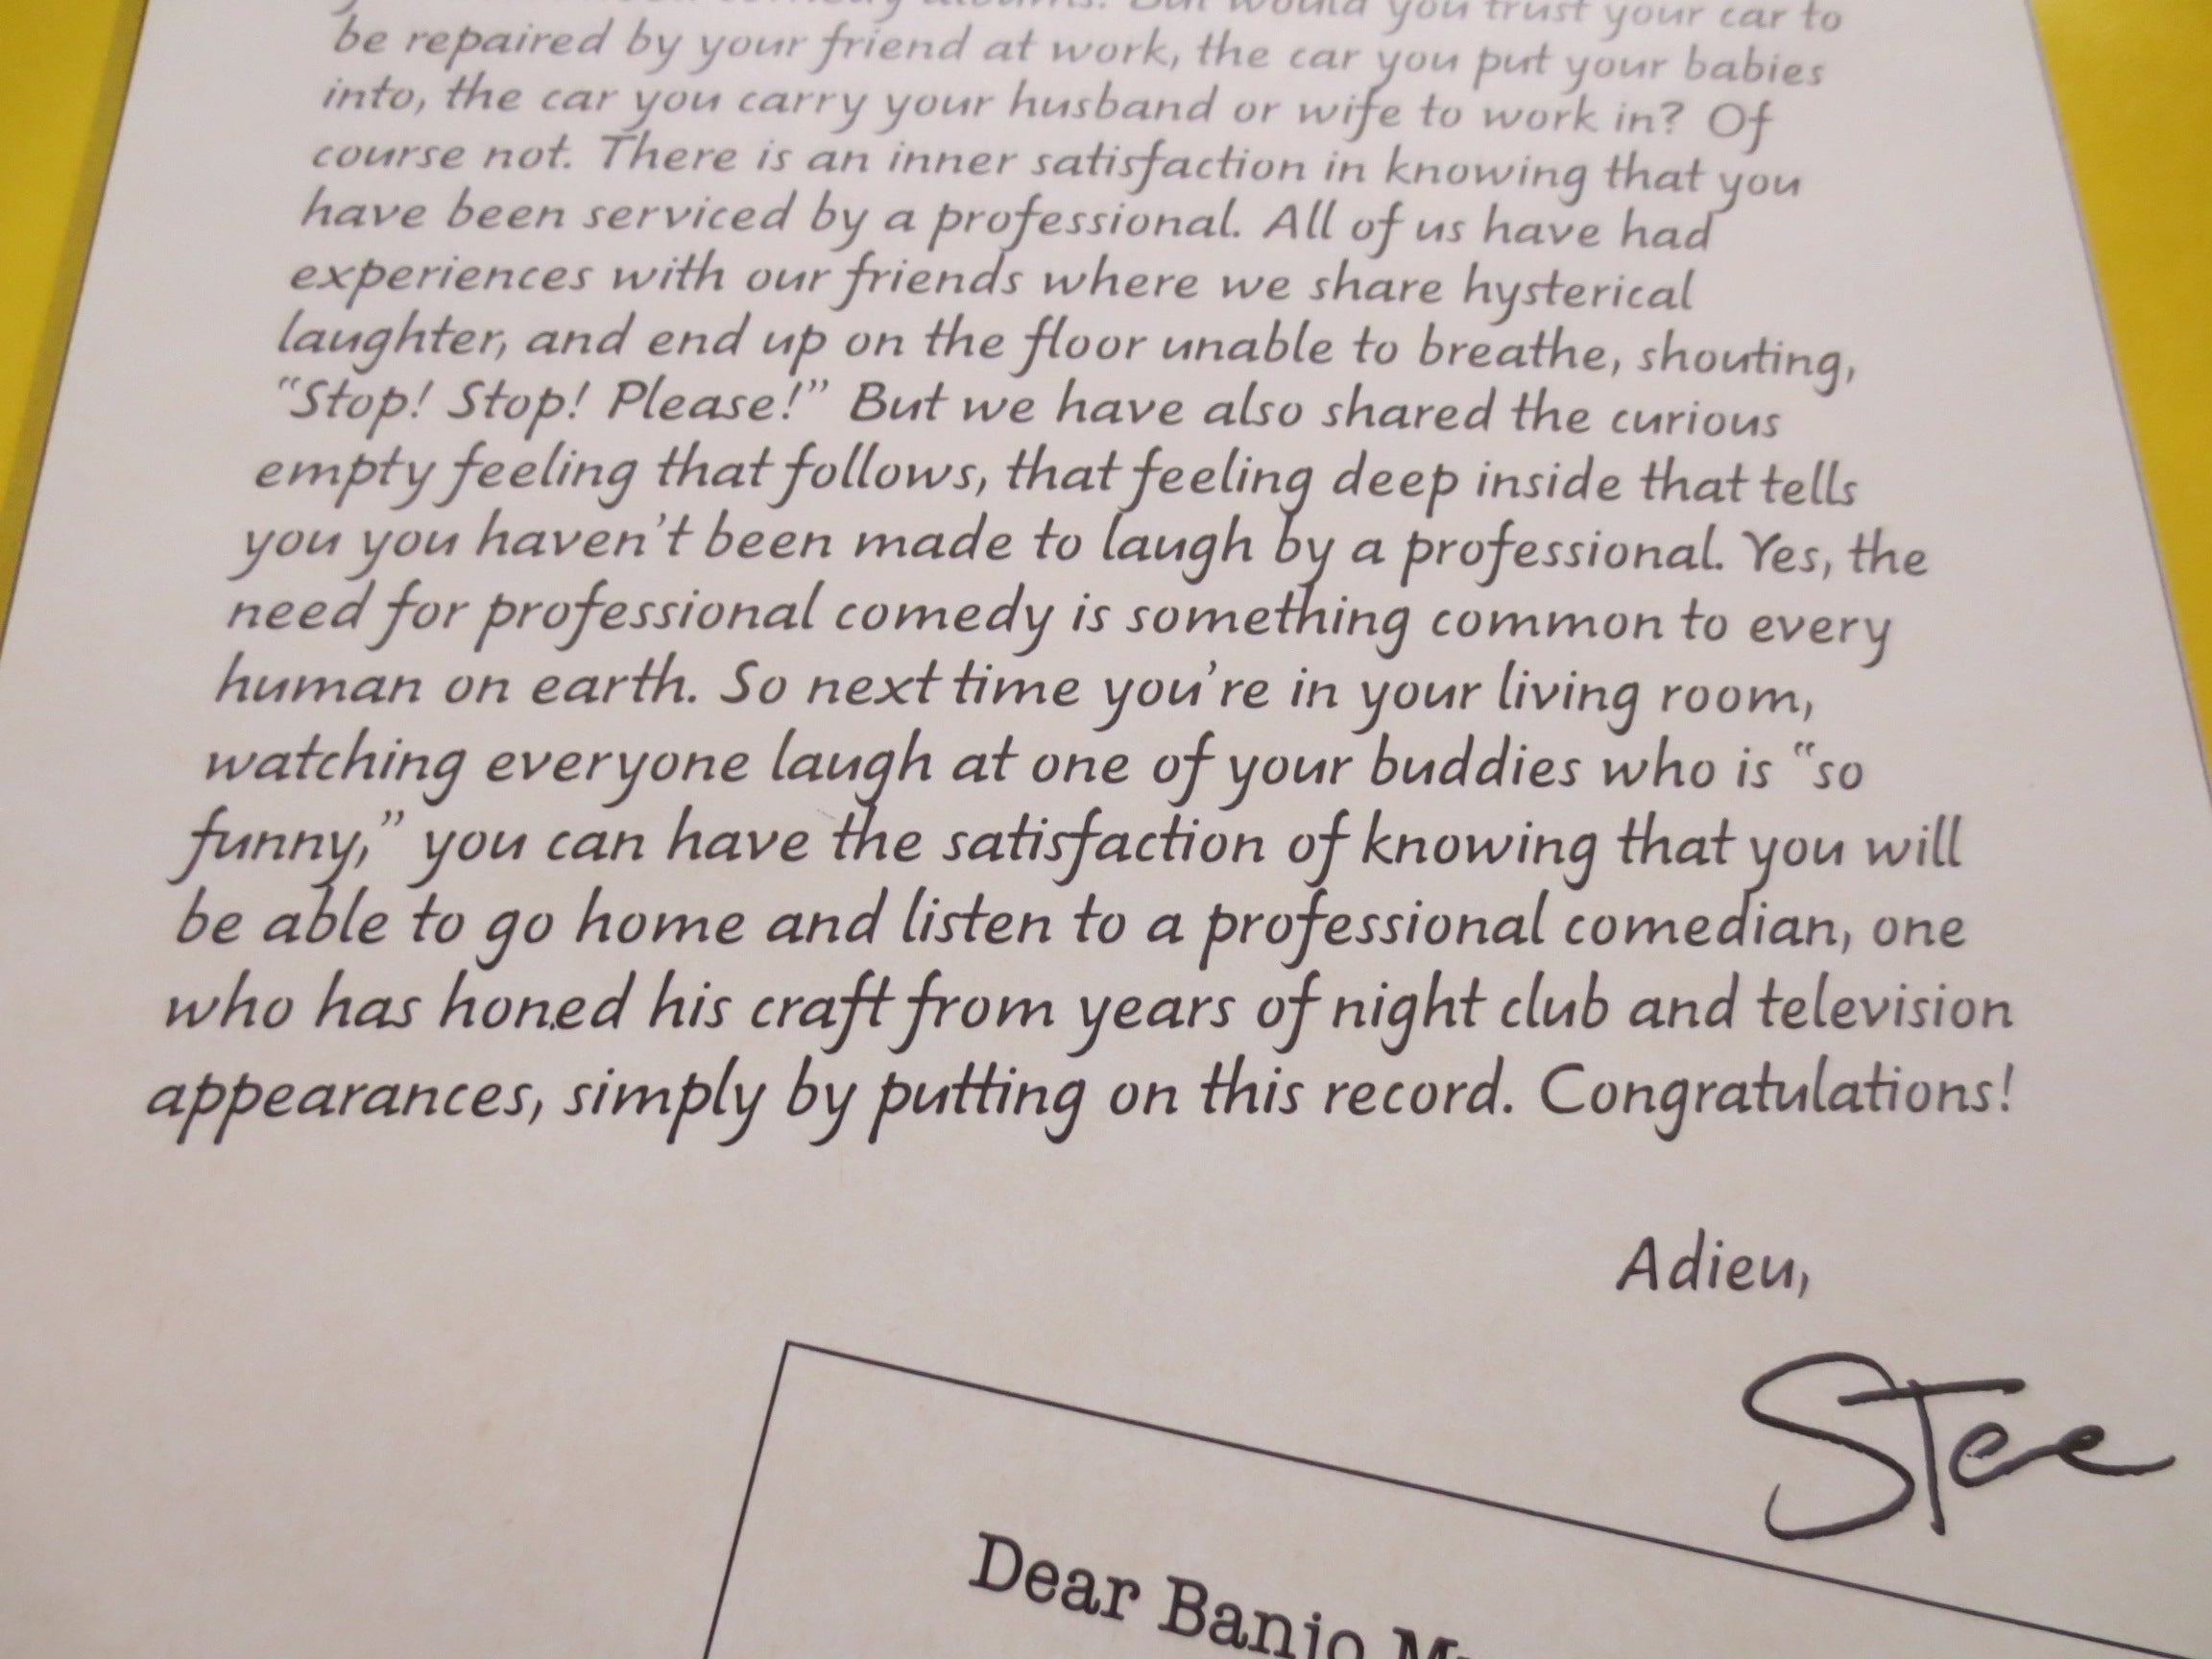 comedy albums. But would you trust your car to
be repaired by your friend at work, the car you put your babies
into, the car you carry your husband or wife to work in? Of
course not. There is an inner satisfaction in knowing that you
have been serviced by a professional. All of us have had
experiences with our friends where we share hysterical
laughter, and end up on the floor unable to breathe, shouting,
“Stop! Stop! Please!” But we have also shared the curious
empty feeling that follows, that feeling deep inside that tells
you you haven’t been made to laugh by a professional. Yes, the
need for professional comedy is something common to every
human on earth. So next time you’re in your living room,
watching everyone laugh at one of your buddies who is “so
funny,” you can have the satisfaction of knowing that you will
be able to go home and listen to a professional comedian, one
who has honed his craft from years of night club and television
appearances, simply by putting on this record. Congratulations!
Adieu,
Dear Banjo